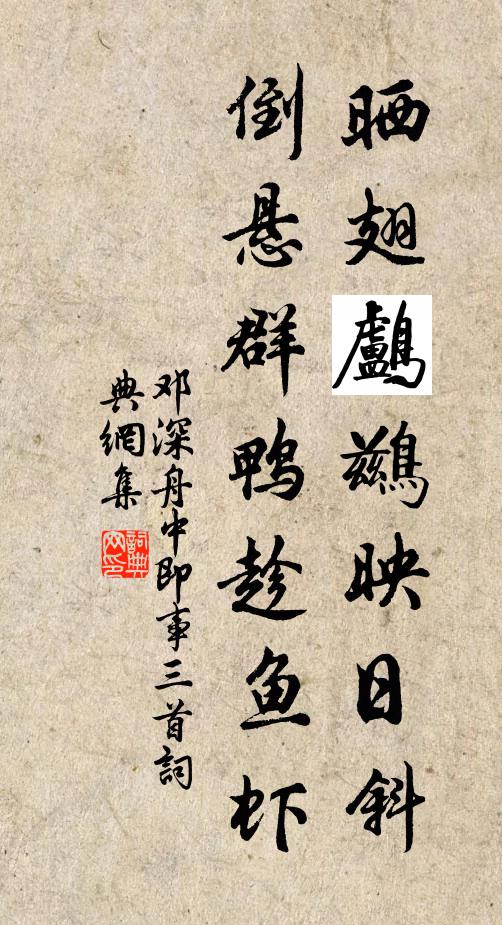 晒翅鸕鷀映日斜
倒悬群鸭趁鱼虾
邓深舟中即事三首詞
典網集
詞典网印